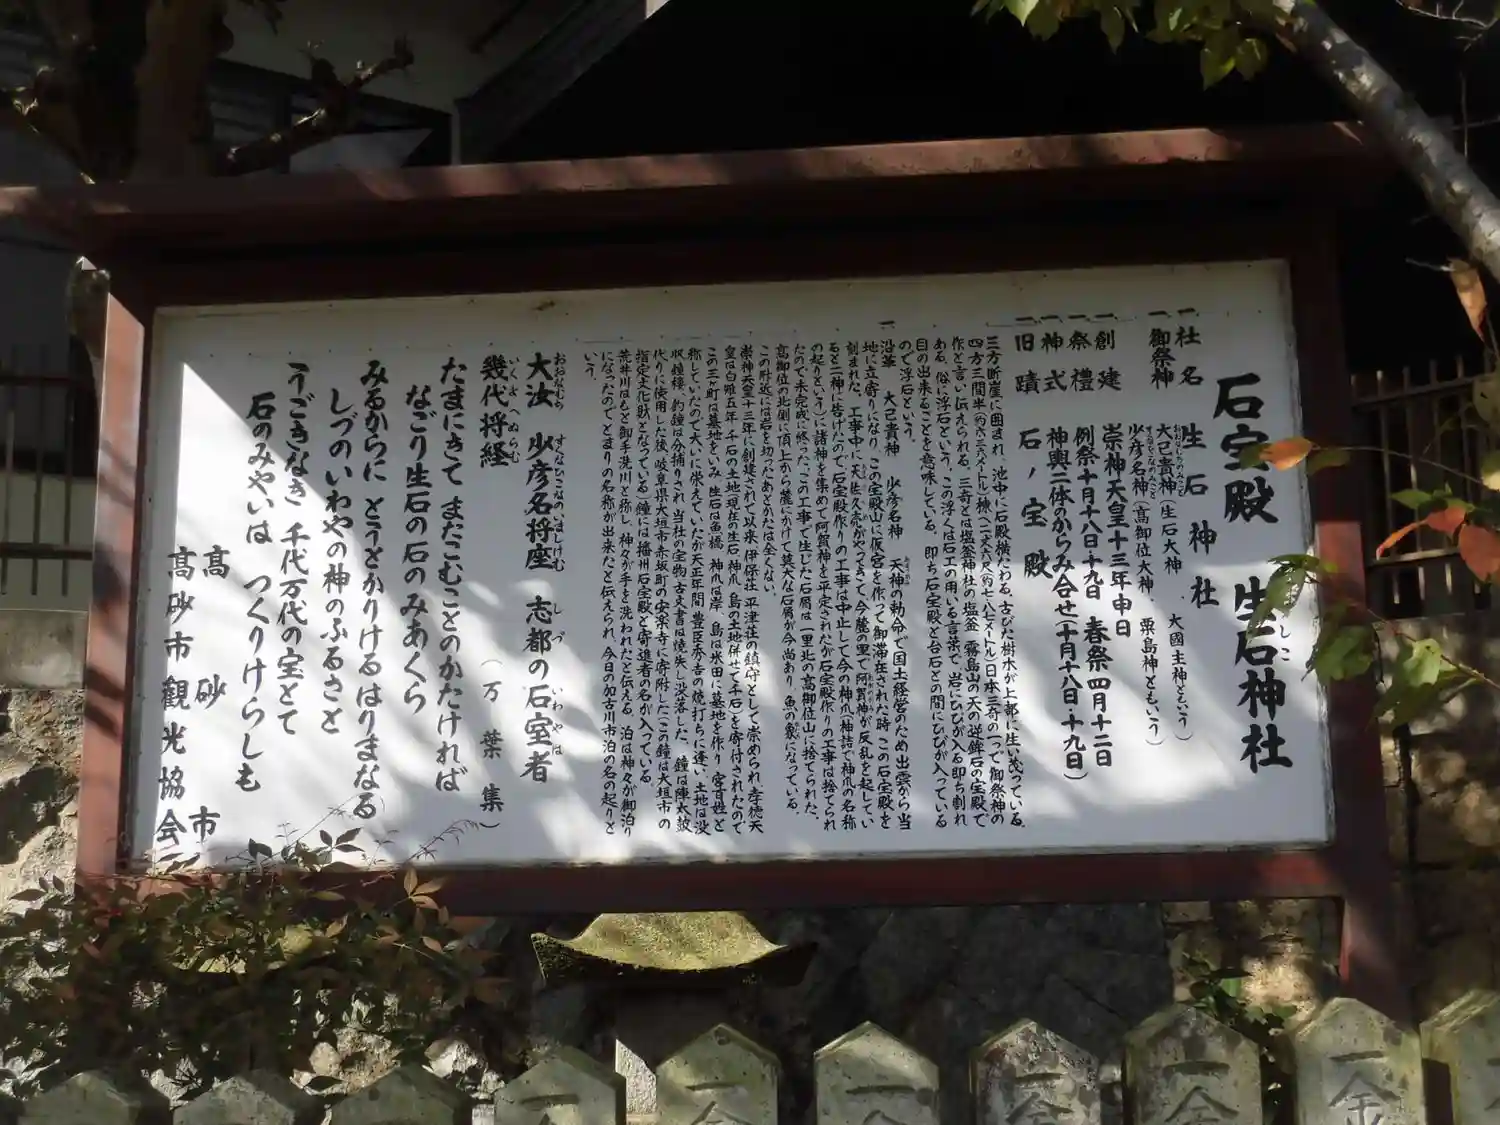 石宝殿 生石神社
おおしこ
一、社名 生石神社
一、御祭神 大己貴神（生石大神 大國主神ともいう）
おおなむちのみこと
少彦名神（高御位大神 粟島神ともいう）
すくなひこなのみこと
一、創建 崇神天皇十三年申日
一、祭禮 例祭十月十八日・十九日 春祭四月十二日
一、神式 神輿二体のからみ合せ（十月十八日・十九日）
一、旧蹟 石ノ宝殿
三方断崖に囲まれ、池中に石殿横たわる。古びた樹木が上部に生い茂っている。
四方三間半（約六・三メートル）棟へ二丈六尺（約七・八七メートル）日本三奇の一つで御祭神の
作と言い伝えられる。三奇とは塩釜神社の塩釜 霧島山の天の逆鉾石の宝殿で
ある。俗に浮石という。この浮くは石工の用いる言葉で、岩にひびが入る即ち割れ
目の出来ることを意味している。即ち石宝殿と台石との間にひびが入っている
ので浮石という。
一、沿革 大己貴神 少彦名神 天神の勅命で国土経営のため出雲から当
地に立寄りになり、この宝殿山に仮宮を作って御滞在された時、この石宝殿を
刻まれた。工事中に天佐久売がやってきて、今麓の里で阿賀神が反乱を起してい
ると二神に告げたので、石宝殿作りの工事は中止して今の神爪（神詰で神爪の名称
の起りという）に諸神を集めて阿賀神を平定されたが石宝殿作りの工事は捨てられ
たので未完成に終った。この工事で生じた石屑は一里北の高御位山に捨てられた。
高御位の北側に頂上から麓にかけて莫大な石屑が今尚あり、魚の象になっている。
この附近には岩を切ったあとかたは全くない。
崇神天皇十三年に創建されて以来 伊保荘 平津荘の鎮守として崇められ孝徳天
皇は白雉五年 千石の土地（現在の生石、神爪、島の土地併せて千石）を寄付されたので
この三ヶ町は墓地をいみ、生石は魚橋、神爪は岸、島は米田に墓地を作り、客百姓と
称していたので大いに栄えていたが天正年間 豊臣秀吉の焼打ちに逢い、土地は没
収、鐘楼、釣鐘は分捕され、当社の宝物・古文書は焼失し没落した。鐘は陣太鼓
代りに使用した後、岐阜県大垣市赤坂町の安楽寺に寄附した（この鐘は大垣市の
指定文化財となっている）鐘には播州石宝殿と寄進者の名が入っている。
荒井川はもと御手洗川と称し、神々が手を洗われたと伝える。泊は神々が御泊り
になったのでとまりの名称が出来たと伝えられ、今日の加古川市泊の名の起りと
いう。
大汝 少彦名将座 志都の石室者
おおなむち すくなひこなのいましけむ しづ いわやは
幾代将経 （万葉集）
いくよへぬらむ
たまにきて まだこむことのかたければ
なごり生石の 石のみあくら
みるからに とうとかりける はりまなる
しづのいわやの 神のふるさと
うごきなき 千代万代の宝とて
石のみやいは つくりけらしも
高砂市
高砂市観光協会